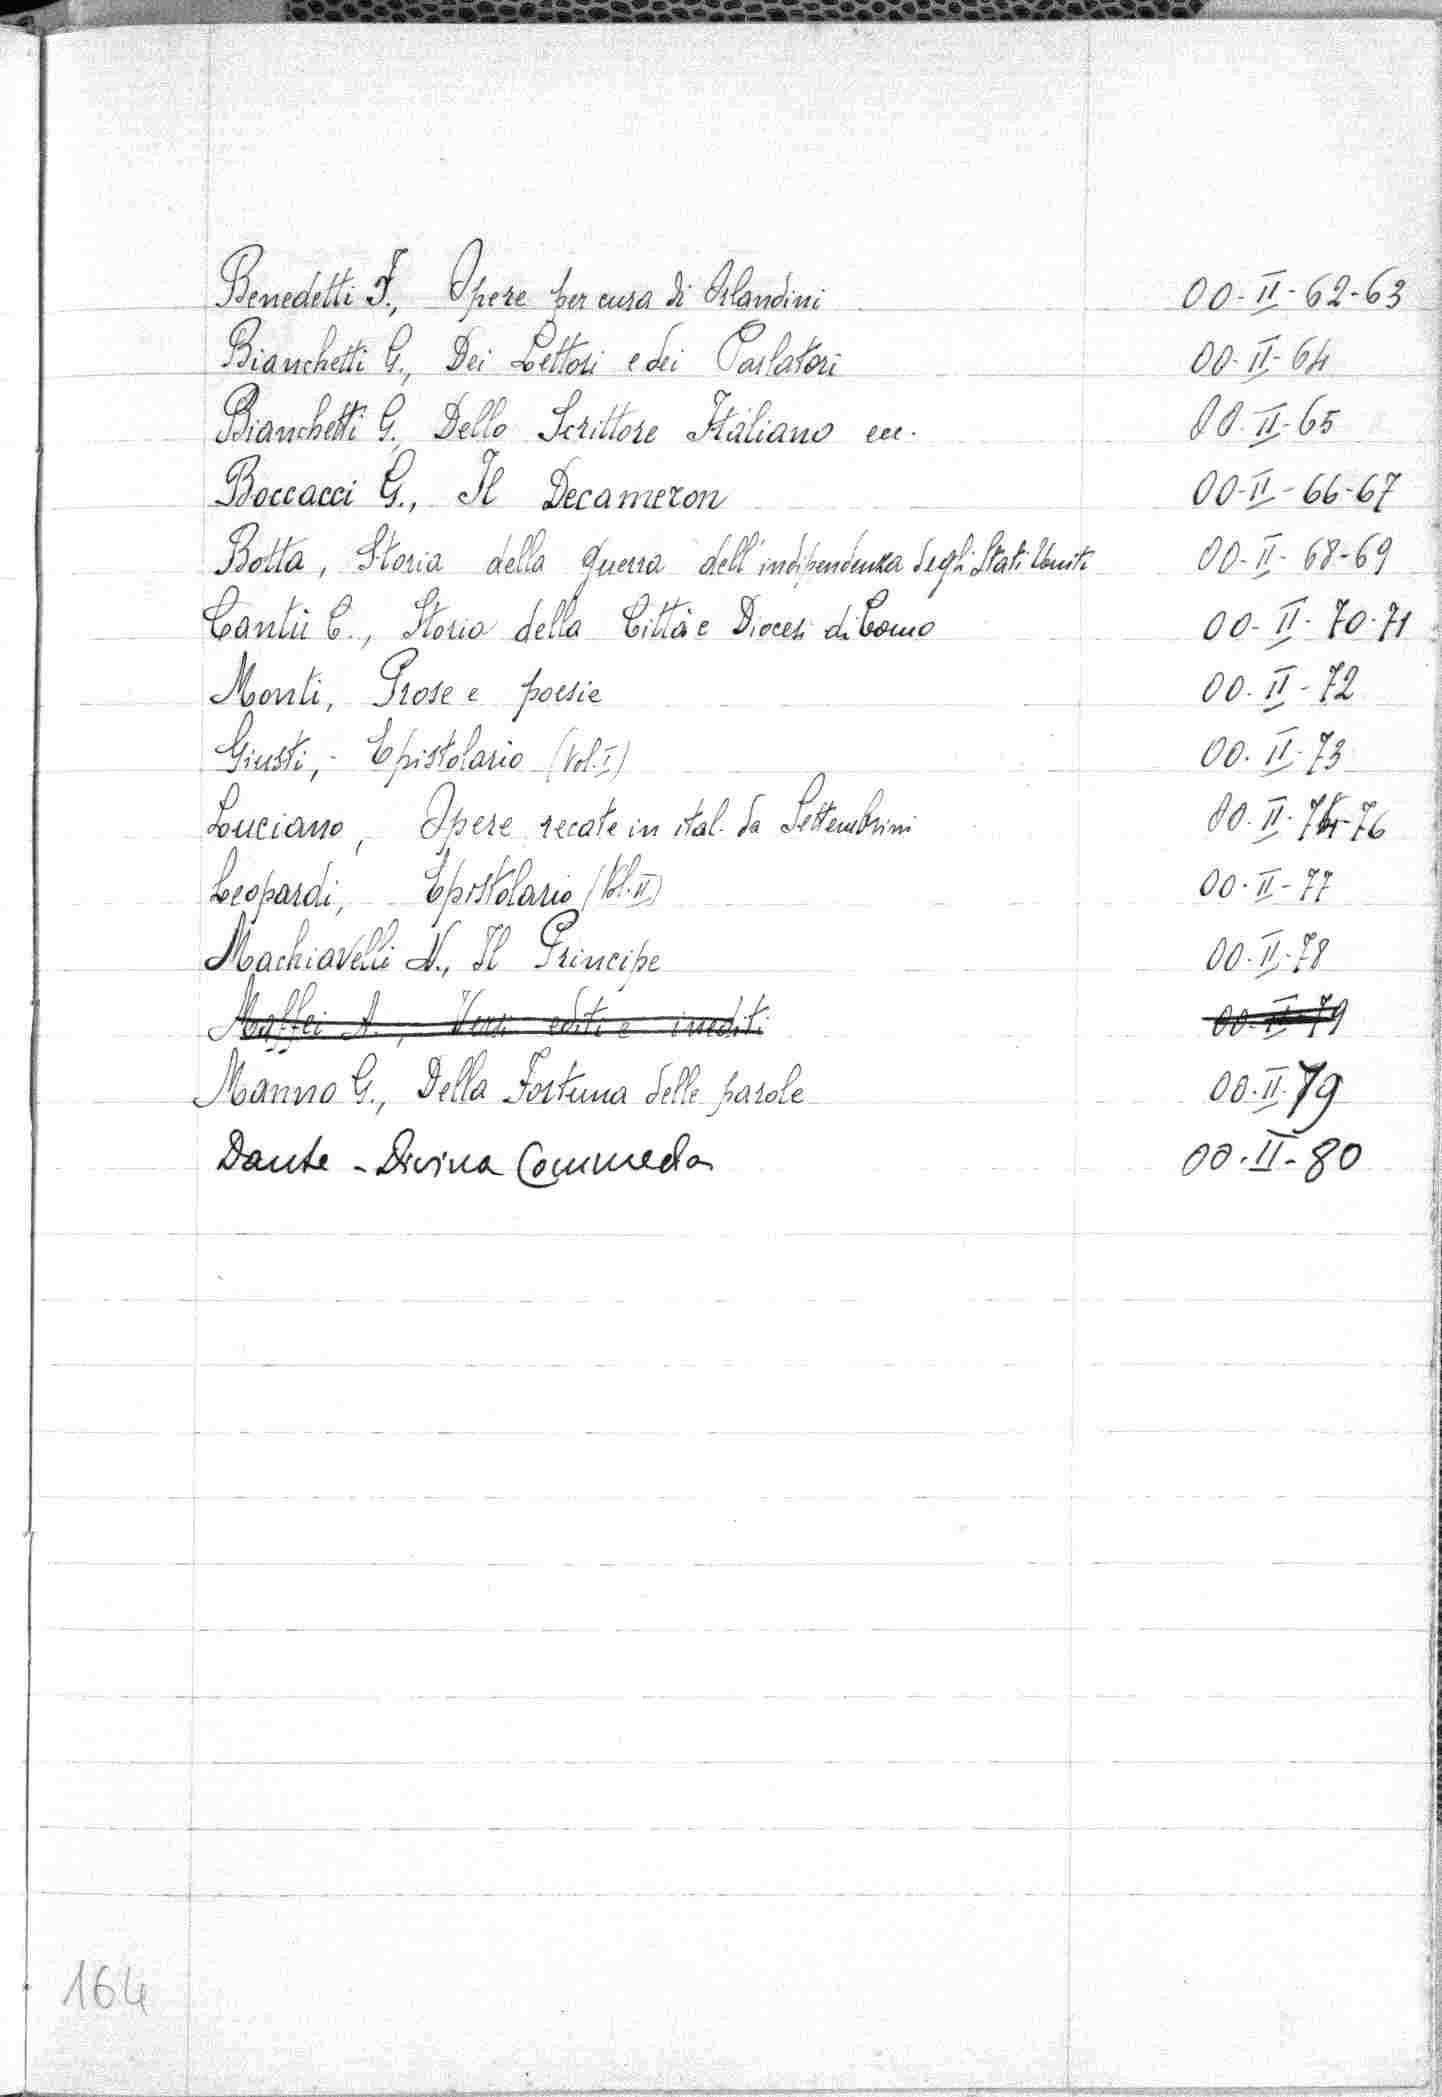 Benedetti F., Opere per cura di Orlandini 00-II-62-63
Bianchetti G., Dei Lettori e dei Parlatori 00-II-64
Bianchetti G., Dello Scrittore Italiano ecc. 00-II-65
Boccacci G., Il Decameron 00-II-66-67
Botta, Storia della guerra dell'indipendenza degli Stati Uniti 00-II-68-69
Cantù C., Storia della Città e Diocesi di Como 00-II-70-71
Monti, Prose e poesie 00-II-72
Giusti, - Epistolario (Vol. I) 00-II-73
Luciano, Opere recate in ital. da Settembrini 00-II-74-76
Leopardi, Epistolario (Vol. II) 00-II-77
Machiavelli N., Il Principe 00-II-78
Maffei A., Versi editi e inediti 00-II-79
Manno G., Della Fortuna delle parole 00-II-79
Dante - Divina Commedia 00-II-80
164